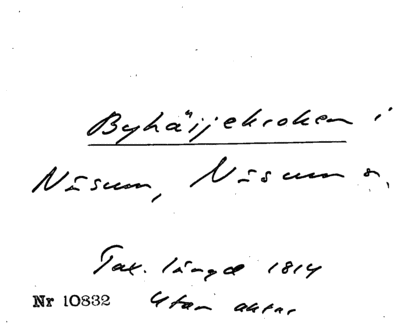 Byhäijekroken i
Näsum, Näsum s.
Tax. längd 1814
Nr 10832 Utan aktnr